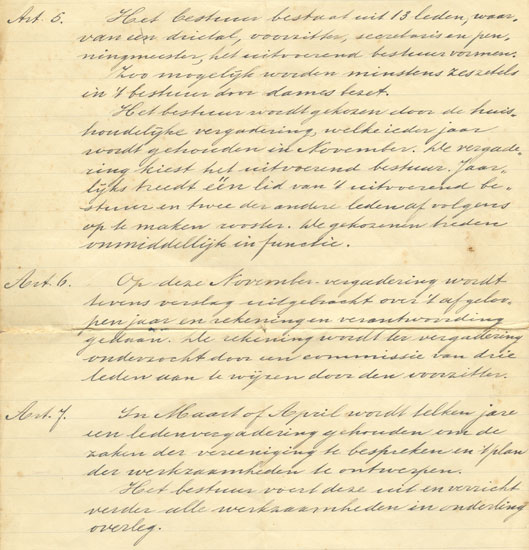 Art. 5. Het bestuur bestaat uit 13 leden, waar-
van een drietal, voorzitter, secretaris en pen-
ningmeester, het uitvoerend bestuur vormen.
Zoo mogelijk worden minstens zes zetels
in 't bestuur door dames bezet.
Het bestuur wordt gekozen door de huis-
houdelijke vergadering, welke ieder jaar
wordt gehouden in November. De vergade-
ring kiest het uitvoerend bestuur. Jaar-
lijks treedt één lid van 't uitvoerend be-
stuur en twee der andere leden af volgens
op te maken rooster. De gekozenen treden
onmiddellijk in functie.
Art. 6. Op deze November-vergadering wordt
tevens verslag uitgebracht over 't afgeloo-
pen jaar en rekening en verantwoording
gedaan. De rekening wordt ter vergadering
onderzocht door een commissie van drie
leden aan te wijzen door den voorzitter.
Art. 7. In Maart of April wordt telken jare
een ledenvergadering gehouden om de
zaken der vereeniging te bespreken en 't plan
der werkzaamheden te ontwerpen.
Het bestuur voert deze uit en verricht
verder alle werkzaamheden in onderling
overleg.